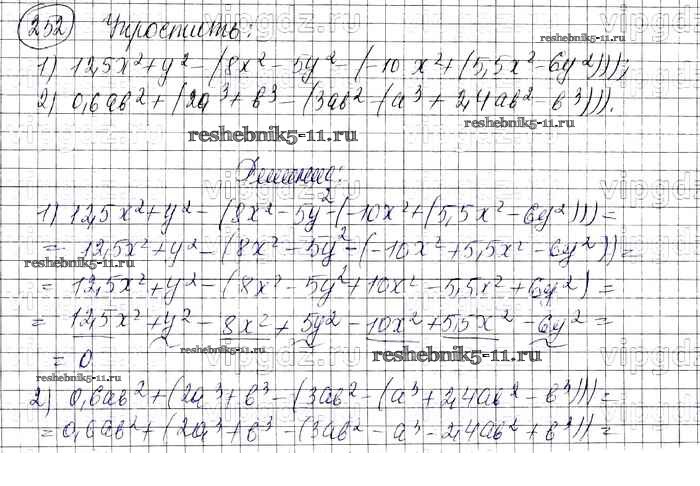 vipgdz.ru
252 Упростить:
reshebnik5-11.ru
1) 12,5x²+y²-(8x²-5y²-(-10x²+(5,5x²-6y²)));
2) 0,6ab²+(2a³+b³-(3ab²-(a³+2,4ab²-b³))).
reshebnik5-11.ru
reshebnik5-11.ru
Решение:
vipgdz.ru
1) 12,5x²+y²-(8x²-5y²-(-10x²+(5,5x²-6y²)))=
= 12,5x²+y²-(8x²-5y²-(-10x²+5,5x²-6y²))=
reshebnik5-11.ru
= 12,5x²+y²-(8x²-5y²+10x²-5,5x²+6y²)=
= 12,5x²+y²-8x²+5y²-10x²+5,5x²-6y²=
reshebnik5-11.ru
reshebnik5-11.ru
= 0
reshebnik5-11.ru
2) 0,6ab²+(2a³+b³-(3ab²-(a³+2,4ab²-b³)))=
= 0,6ab²+(2a³+b³-(3ab²-a³-2,4ab²+b³))=